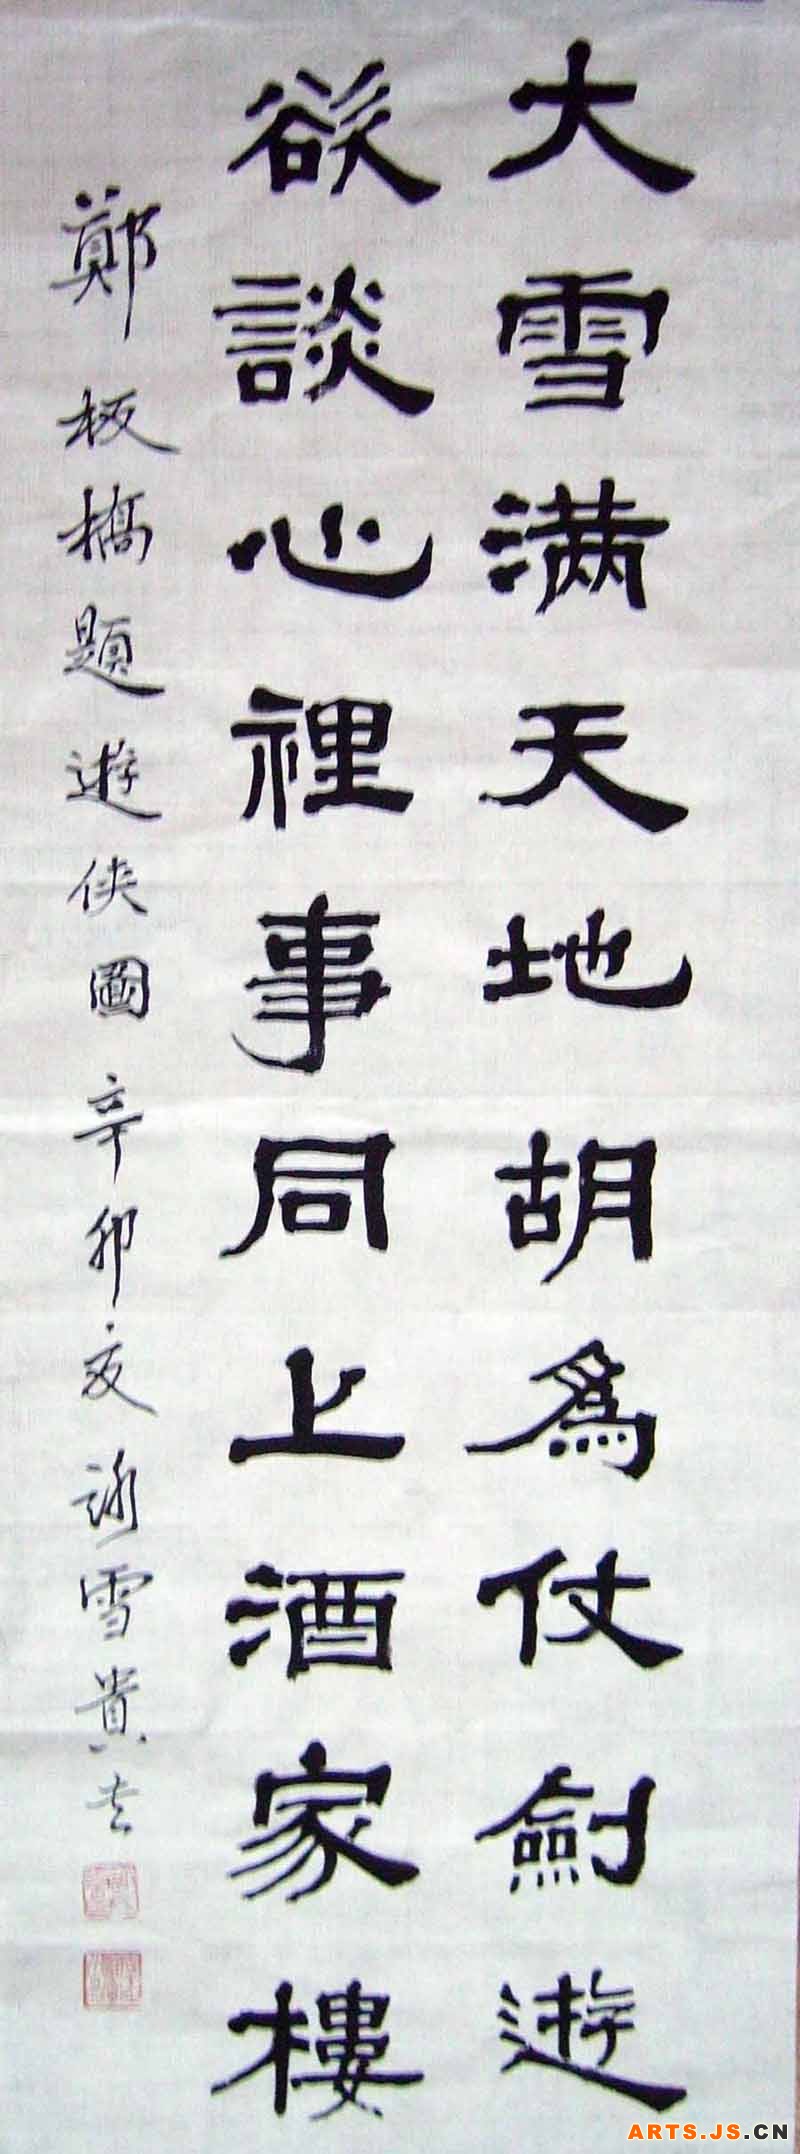 大雪满天地胡為仗劍遊
欲談心裡事同上酒家樓
鄭板橋題遊俠圖 辛卯夏詠雪貴
ARTS.JS.CN